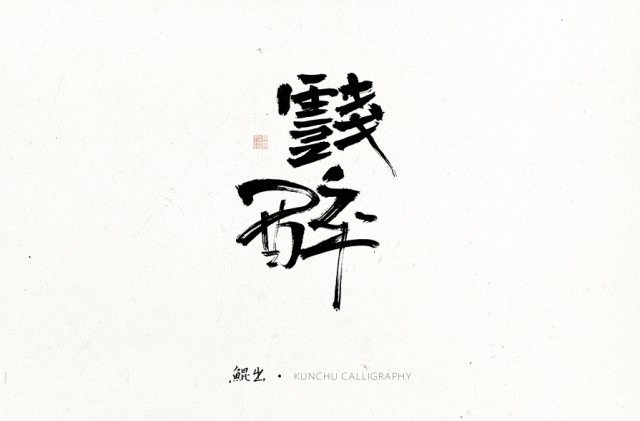 戲
醉
鯤出 • KUNCHU CALLIGRAPHY